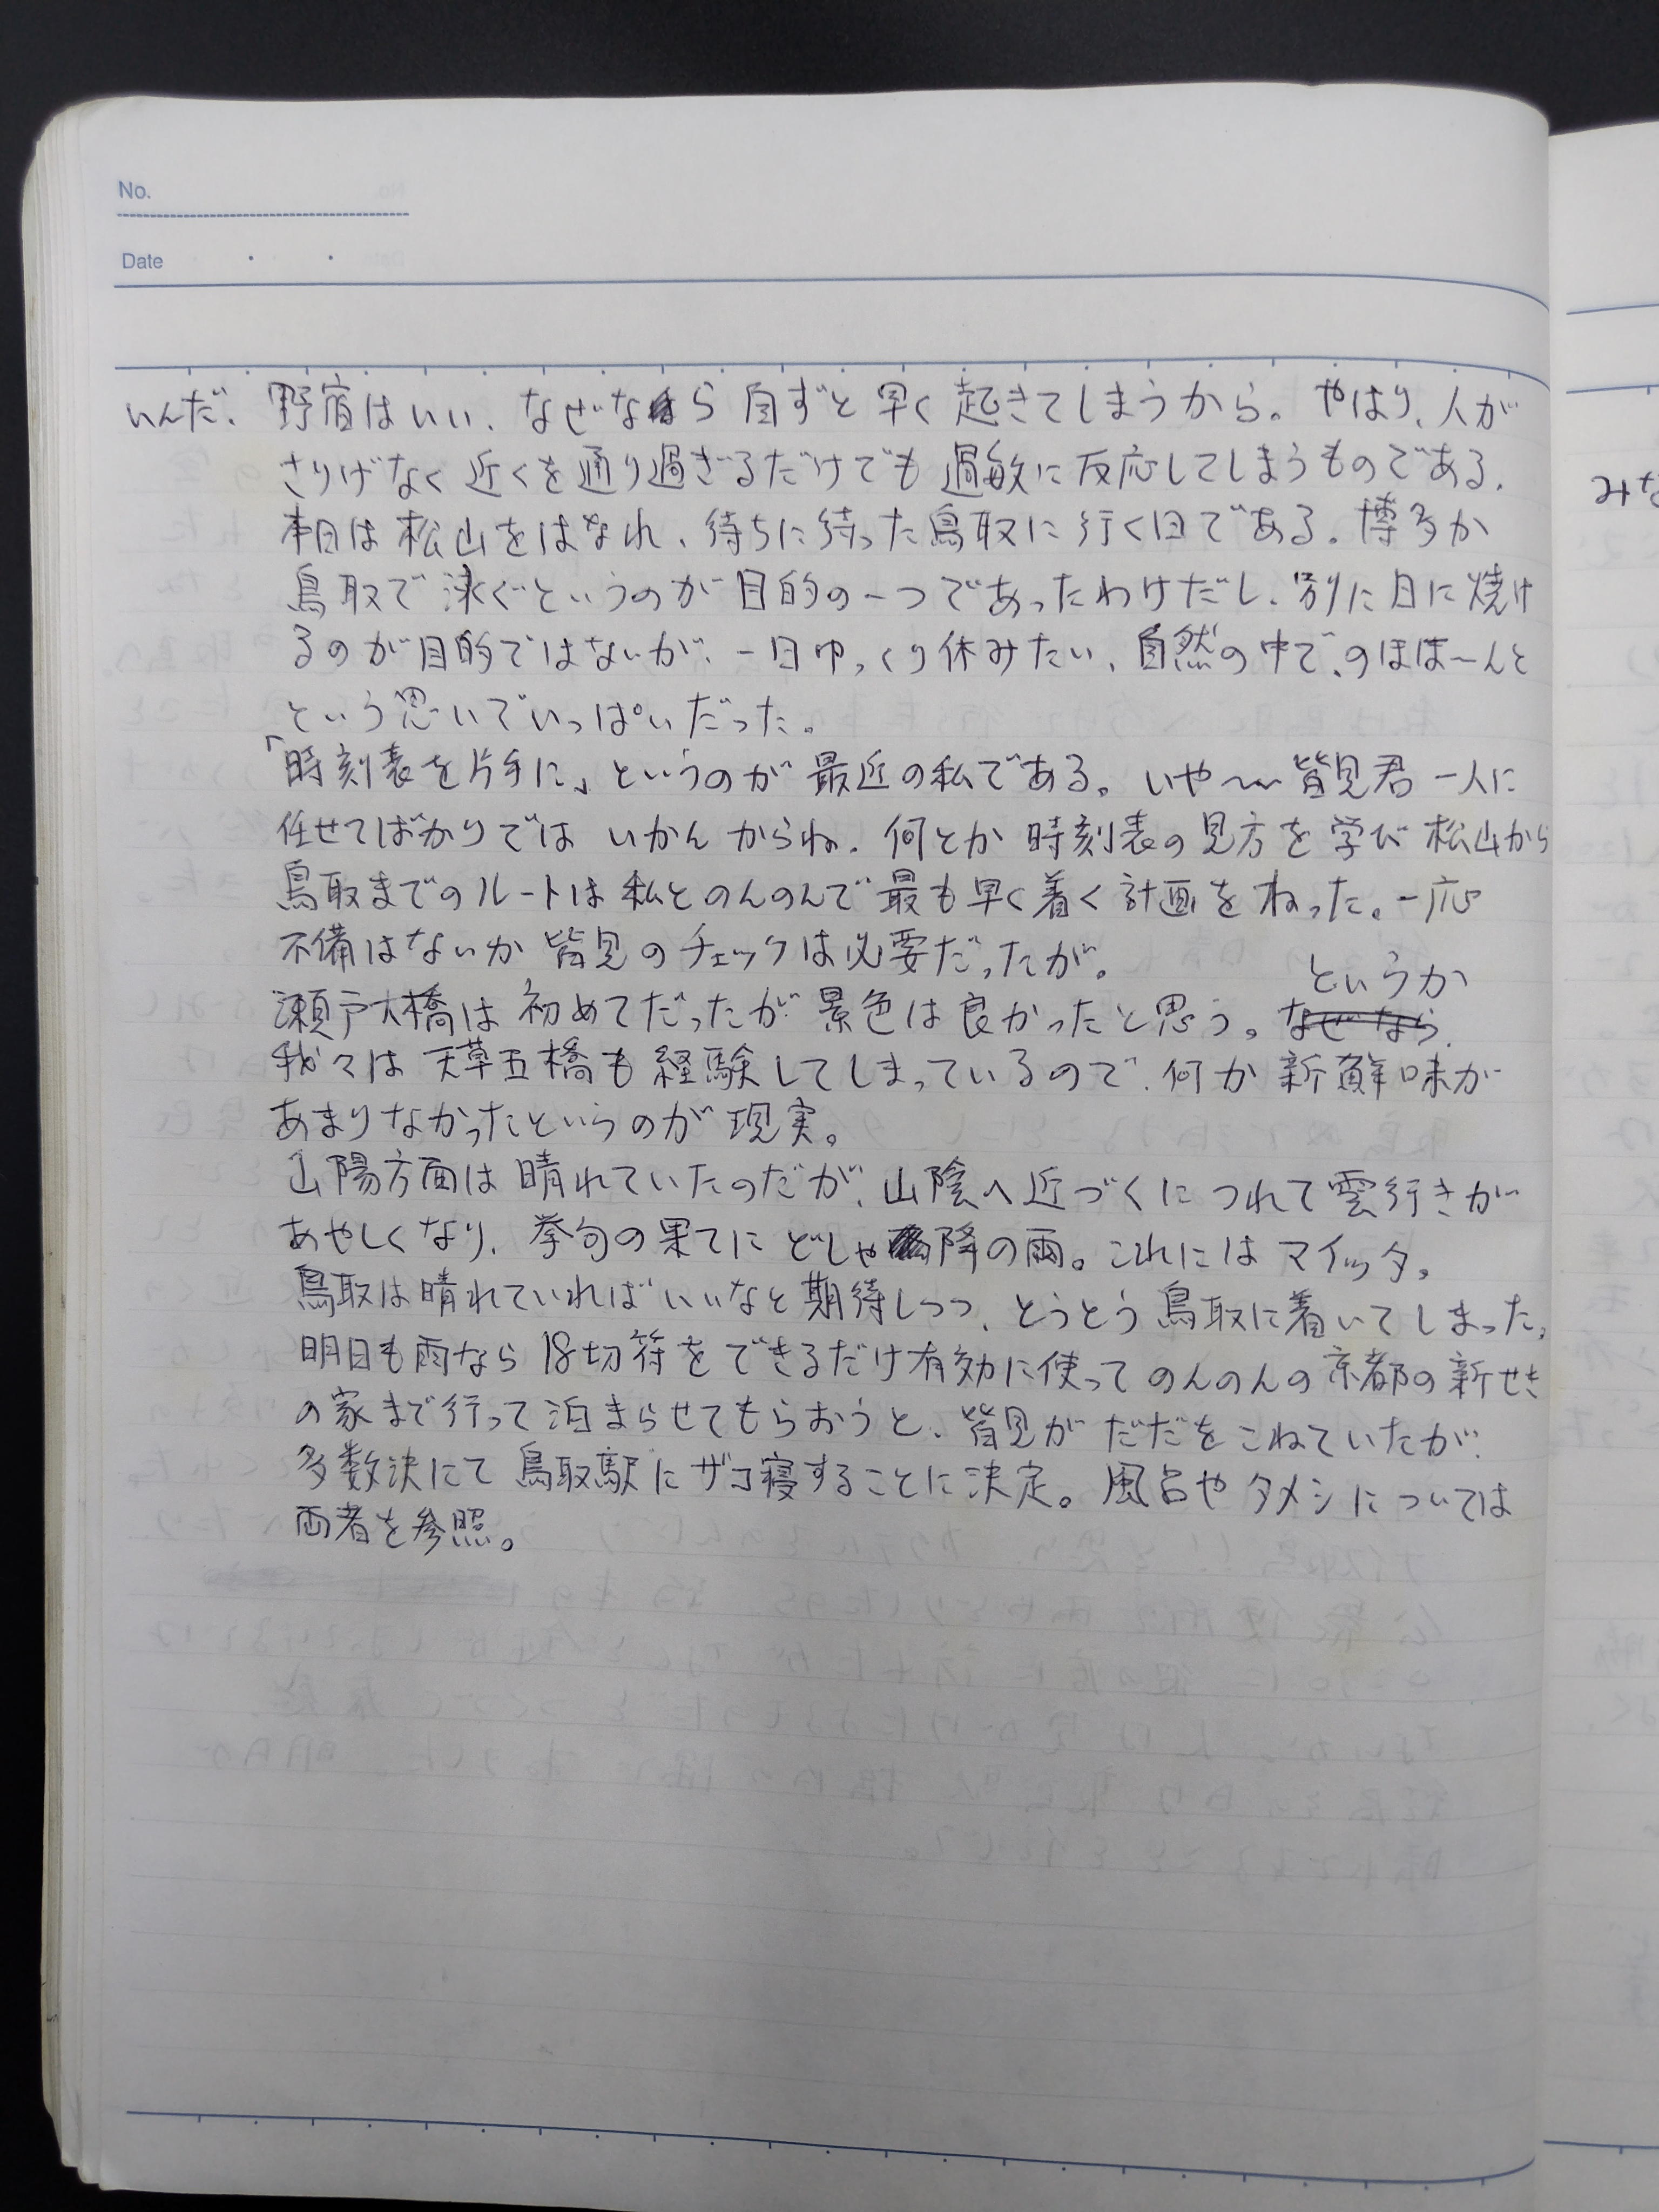 No.
Date
いんだ、 野宿はいい、なぜなら 自ずと早く起きてしまうから。やはり、人が
さりげなく近くを通り過ぎるだけでも過敏に反応してしまうものである。
本日は松山をはなれ、待ちに待った鳥取に行く日である。博多か
鳥取で泳ぐというのが目的の一つであったわけだし、別に日に焼け
るのが目的ではないが、一日ゆっくり休みたい、自然の中で、のほほーんと
という思いでいっぱいだった。
「時刻表を片手に」というのが最近の私である。いや〜皆見君一人に
任せてばかりでは いかんからね。何とか時刻表の見方を学び松山から
鳥取までのルートは私とのんのんで最も早く着く計画をねった。一応
不備はないか皆見のチェックは必要だったが。
というか
瀬戸大橋は初めてだったが景色は良かったと思う。なぜなら、
我々は天草五橋も経験してしまっているので、何か新鮮味が
あまりなかったというのが現実。
山陽方面は晴れていたのだが、山陰へ近づくにつれて雲行きが
あやしくなり、挙句の果てにどしゃ降の雨。これにはマイッタ。
鳥取は晴れていればいいなと期待しつつ、とうとう鳥取に着いてしまった。
明日も雨なら18切符をできるだけ有効に使ってのんのんの京都の新せき
の家まで行って泊まらせてもらおうと、皆見がだだをこねていたが、
多数決にて鳥取駅にザコ寝することに決定。風呂やタメシについては
両者を参照。
みな